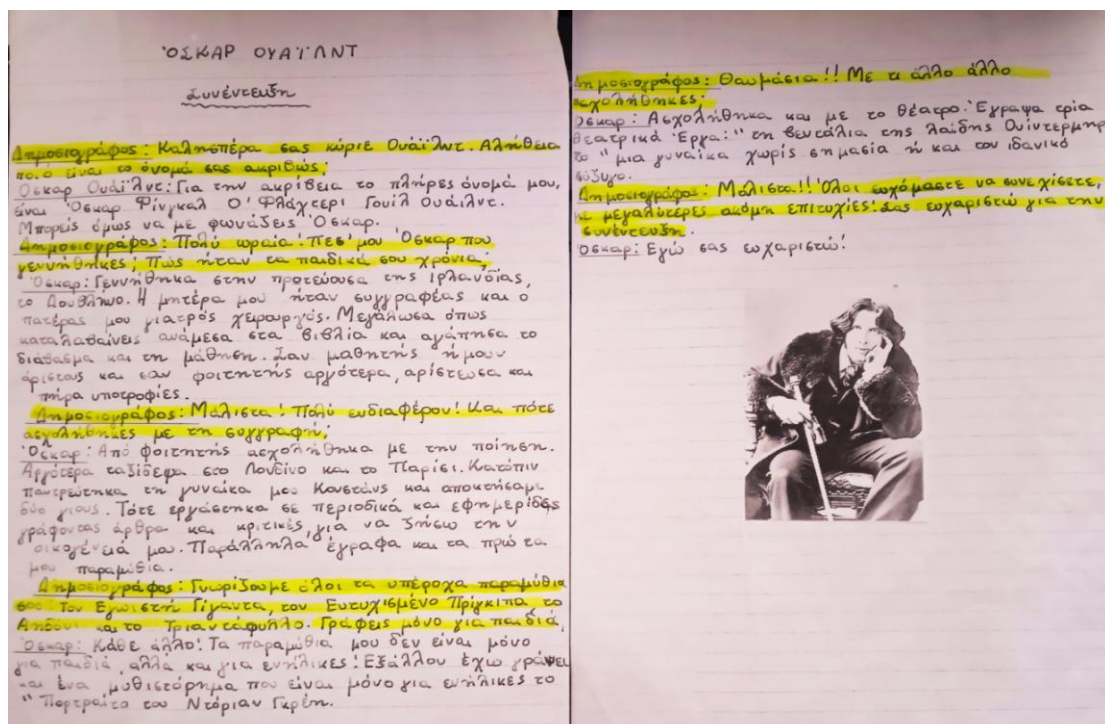 ΌΣΚΑΡ ΟΥΑΪΛΝΤ
Συνέντευξη
Δημοσιογράφος: Καλησπέρα σας κύριε Ουάϊλντ. Αλήθεια
ποιο είναι το όνομά σας ακριβώς;
Όσκαρ Ουάϊλντ: Για την ακρίβεια το πλήρες όνομά μου,
είναι Όσκαρ Φίνγκαλ Ο' Φλάχτερι Γουίλ Ουάιλντ.
Μπορείς όμως να με φωνάξεις Όσκαρ.
Δημοσιογράφος: Πολύ ωραία! Πες' μου Όσκαρ που
γεννήθηκες; Πώς ήταν τα παιδικά σου χρόνια;
Όσκαρ: Γεννήθηκα στην πρωτεύουσα της Ιρλανδίας,
το Δουβλίνο. Η μητέρα μου ήταν συγγραφέας και ο
πατέρας μου γιατρός χειρουργός. Μεγάλωσα όπως
καταλαβαίνεις ανάμεσα στα βιβλία και αγάπησα το
διάβασμα και τη μάθηση. Σαν μαθητής ήμουν
άριστος και σαν φοιτητής αργότερα, αρίστευσα και
πήρα υποτροφίες.
Δημοσιογράφος: Μάλιστα! Πολύ ενδιαφέρον! Και πότε
ασχολήθηκες με τη συγγραφή;
Όσκαρ: Από φοιτητής ασχολήθηκα με την ποίηση.
Αργότερα ταξίδεψα στο Λονδίνο και το Παρίσι. Κατόπιν
παντρεύτηκα τη γυναίκα μου Κονστάνς και αποκτήσαμε
δύο γιους. Τότε εργάστηκα σε περιοδικά και εφημερίδες
γράφοντας άρθρα και κριτικές, για να ζήσω την
οικογένειά μου. Παράλληλα έγραφα και τα πρώτα
μου παραμύθια.
Δημοσιογράφος: Γνωρίζουμε όλοι τα υπέροχα παραμύθια
σου: Τον Εγωιστή Γίγαντα, τον Ευτυχισμένο Πρίγκιπα, το
Αηδόνι και το Τριαντάφυλλο. Γράφεις μόνο για παιδιά;
Όσκαρ: Κάθε άλλο! Τα παραμύθια μου δεν είναι μόνο
για παιδιά, αλλά και για ενήλικες! Εξάλλου έχω γράψει
και ένα μυθιστόρημα που είναι μόνο για ενήλικες το
" Πορτραίτο του Ντόριαν Γκρέη.
Δημοσιογράφος: Θαυμάσια!! Με τι άλλο άλλο
ασχολήθηκες;
Όσκαρ: Ασχολήθηκα και με το θέατρο. Έγραψα τρία
θεατρικά Έργα: " τη βεντάλια της λαίδης Ουίντερμηρ
το " μια γυναίκα χωρίς σημασία ή και τον ιδανικό
σύζυγο.
Δημοσιογράφος: Μάλιστα!! Όλοι ευχόμαστε να συνεχίσετε,
με μεγαλύτερες ακόμη επιτυχίες! Σας ευχαριστώ για την
συνέντευξη.
Όσκαρ: Εγώ σας ευχαριστώ!